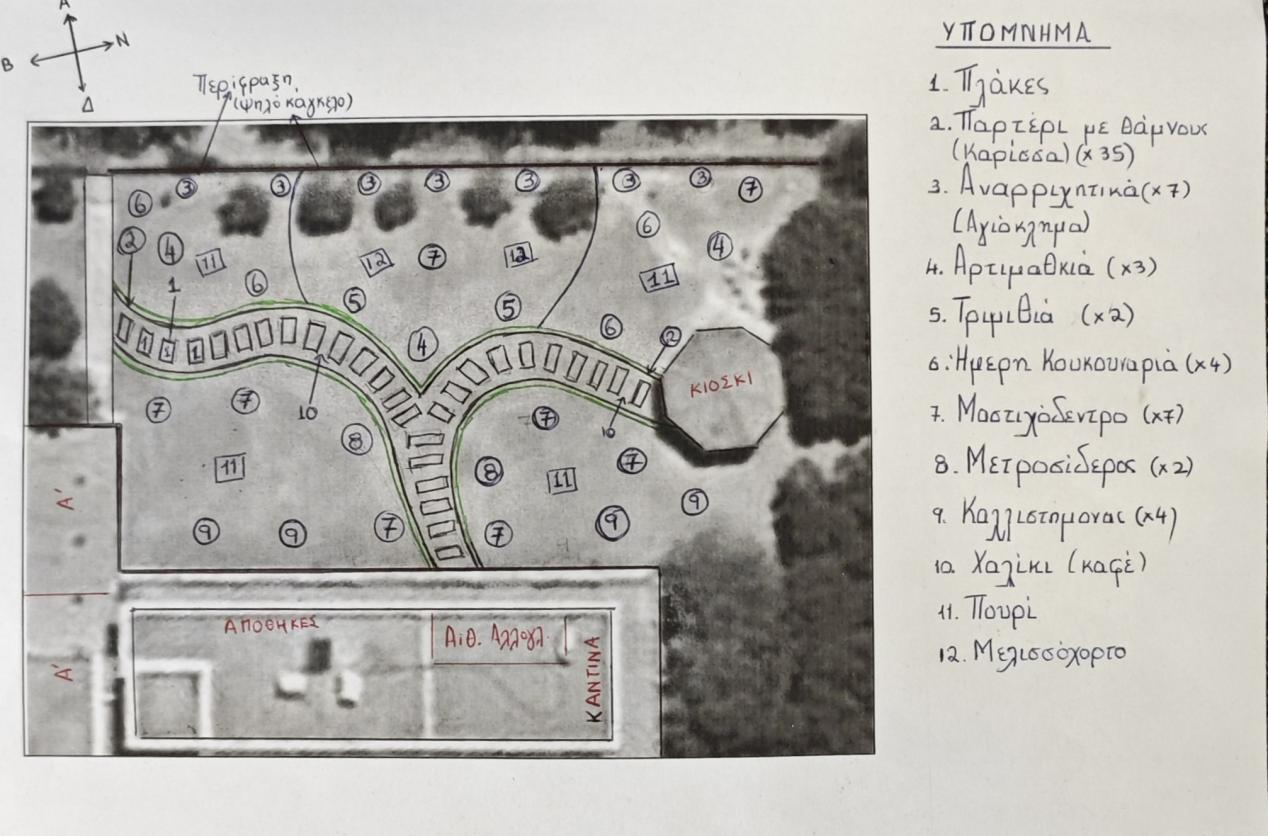 Α
Β
Ν
Δ
Περίφραξη,
(ψηλό κάγκελο)
3 3 3 3 3 3 3 7
6
2 4 11 12 7 12 6 4
1 6 11
5 5
4 6 2
1 1 1
ΚΙΟΣΚΙ
10 10
7 7 7
8 7
11 8 11
9
9 9 7 7 9
Α'
Α'
ΑΠΟΘΗΚΕΣ
Αιθ. Αλλογλ.
ΚΑΝΤΙΝΑ
ΥΠΟΜΝΗΜΑ
1. Πλάκες
2. Παρτέρι με θάμνους
(Καρίσσα) (x 35)
3. Αναρριχητικά (x7)
(Αγιόκλημα)
4. Αρτιμαθκιά (x3)
5. Τριμιθιά (x2)
6. Ήμερη Κουκουναριά (x4)
7. Μαστιχόδεντρο (x7)
8. Μετροσίδερος (x2)
9. Καλλιστήμονας (x4)
10. Χαλίκι (καφέ)
11. Πουρί
12. Μελισσόχορτο